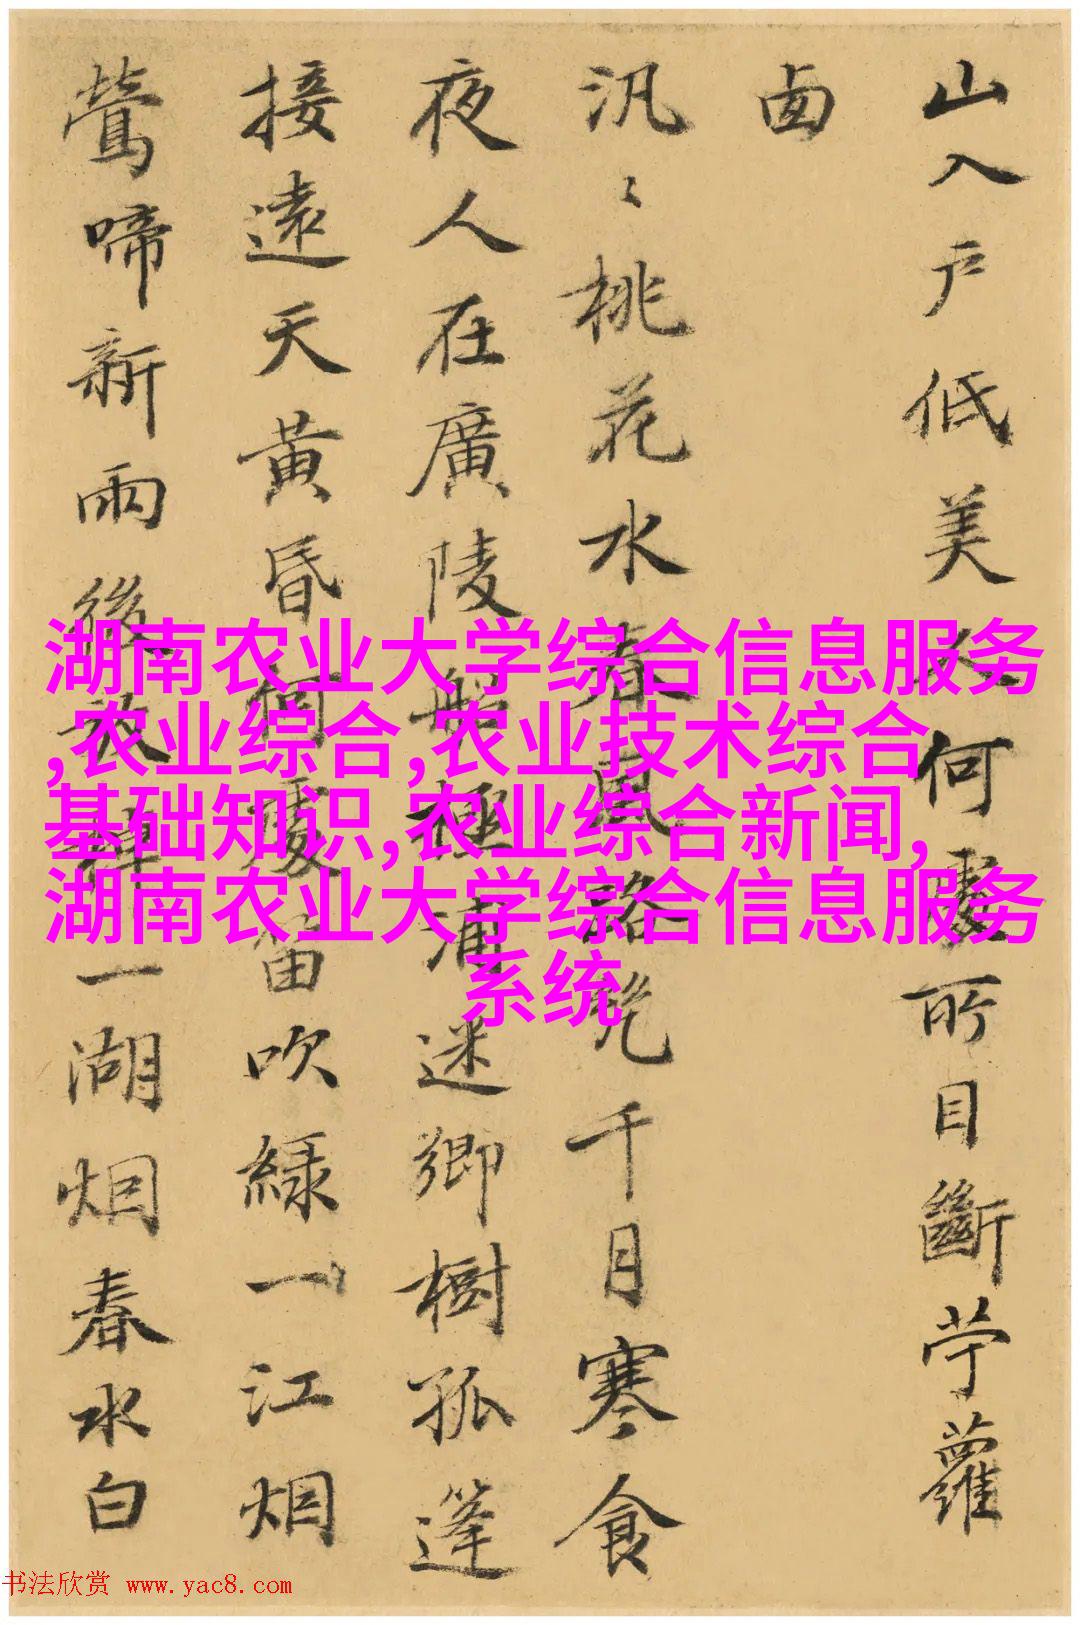 山入戶低美人何處所目斷苧蘿
西
汎〻桃花水春風路幾千月寒食
夜人在廣陵船極浦迷鄉樹孤篷
接遠天黃昏何處笛吹綠一江烟
鶯啼新雨後放棹一湖烟春水白
湖南农业大学综合信息服务
,农业综合,农业技术综合
基础知识,农业综合新闻,
湖南农业大学综合信息服务
系统
书法欣赏 www.yac8.com